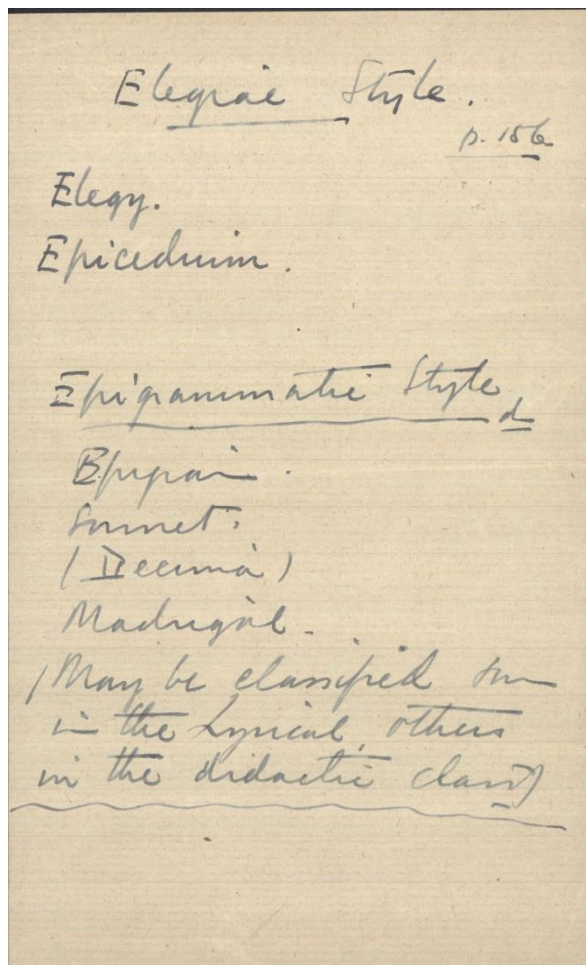 Elegiac Style.
p. 156
Elegy.
Epicedium.
Epigrammatic Style
Epigram.
Sonnet.
(Decima)
Madrigal.
(May be classified some
in the Lyrical, others
in the didactic class)